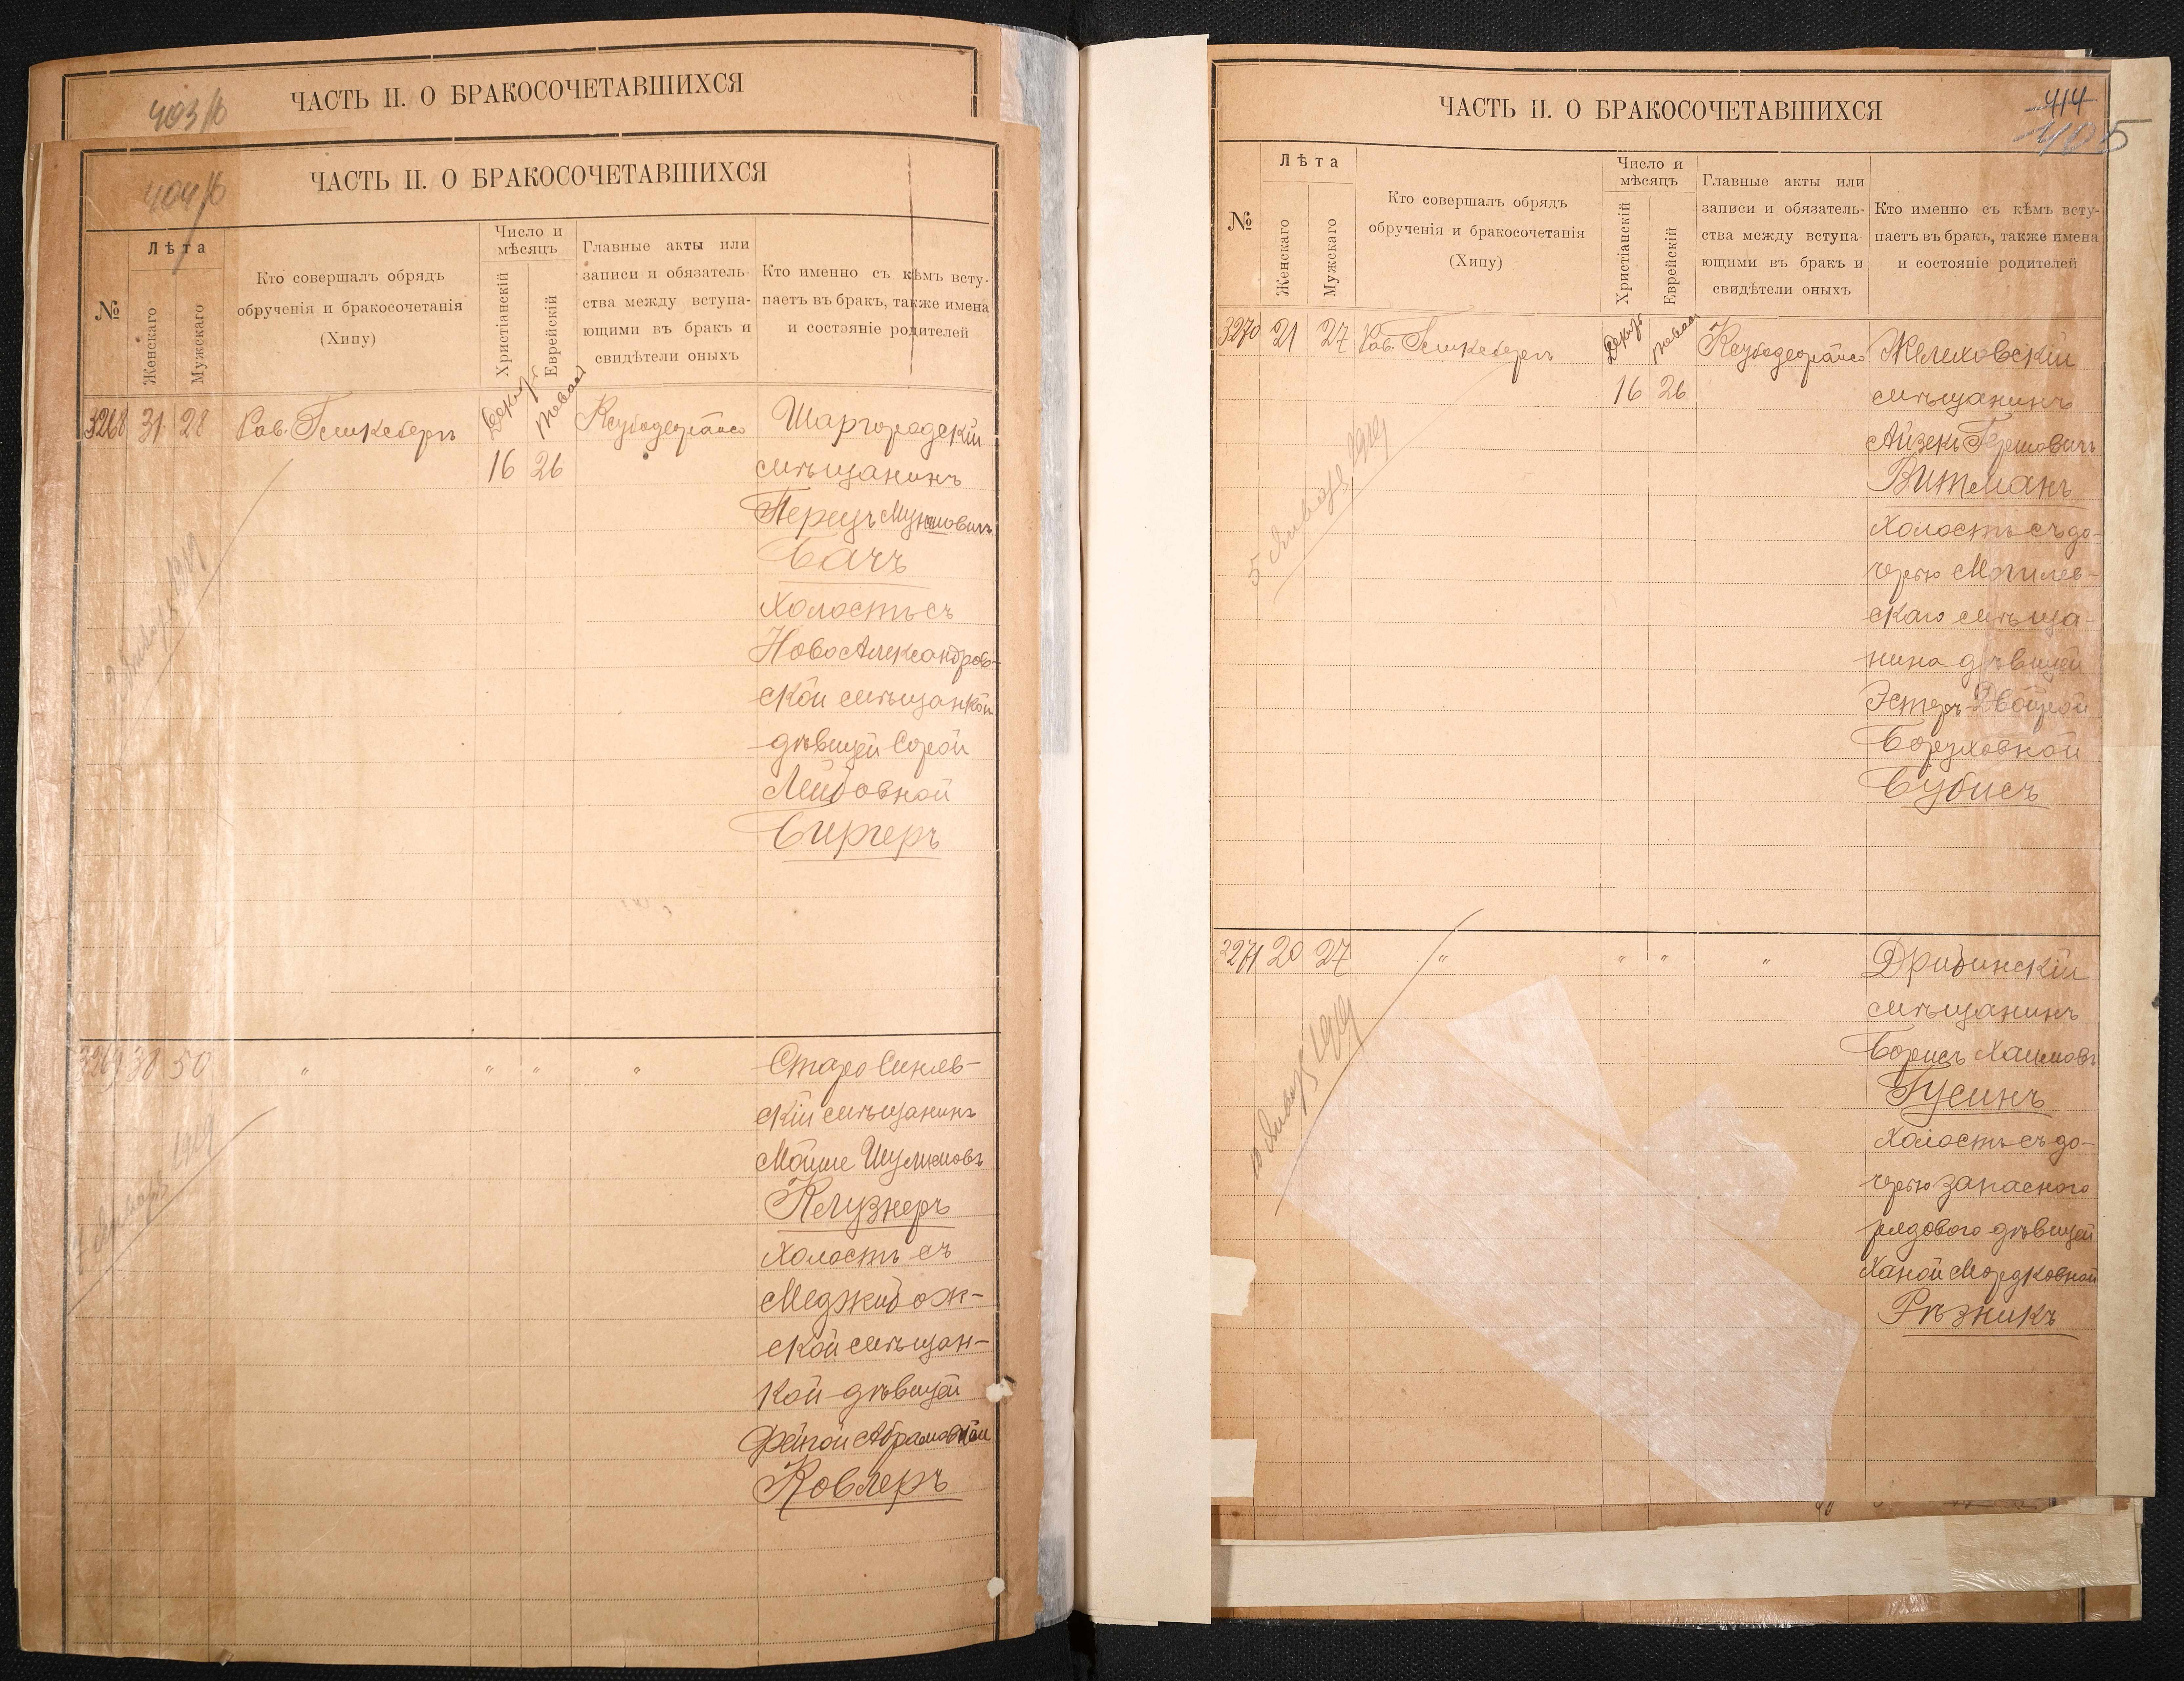 403/б
ЧАСТЬ II. О БРАКОСОЧЕТАВШИХСЯ
404/б
ЧАСТЬ II. О БРАКОСОЧЕТАВШИХСЯ
№
Лѣта
Женскаго
Мужскаго
Кто совершалъ обрядъ
обрученія и бракосочетанія
(Хипу)
Число и
мѣсяцъ
Христіанскій
Еврейскій
Главные акты или
записи и обязатель-
ства между вступа-
ющими въ бракъ и
свидѣтели оныхъ
Кто именно съ кѣмъ всту-
паетъ въ бракъ, также имена
и состояніе родителей
3268 31 28 Рав. 16 26
Шаргородскій
мѣщанинъ
Перецъ
Бачъ
Холостъ съ
НовоАлександров-
ской мѣщанкой
дѣвицей Сорой
Лейбовной
Биргеръ
1919
3269 30 50 " " " "
СтароСиняв-
скій мѣщанинъ
Мойше Шулимовъ
Клузнеръ
Холостъ съ
Меджибож-
ской мѣщан-
кой дѣвицей
Фейгой Абрамовной
Ковлеръ
Января 1919
ЧАСТЬ II. О БРАКОСОЧЕТАВШИХСЯ
414
405
№
Лѣта
Женскаго
Мужскаго
Кто совершалъ обрядъ
обрученія и бракосочетанія
(Хипу)
Число и
мѣсяцъ
Христіанскій
Еврейскій
Главные акты или
записи и обязатель-
ства между вступа-
ющими въ бракъ и
свидѣтели оныхъ
Кто именно съ кѣмъ всту-
паетъ въ бракъ, также имена
и состояніе родителей
3270 21 27 Рав. 16 26
Желеховскій
мѣщанинъ
Айзекъ Гершовичъ
Витманъ
Холостъ съ до-
черью Могилев-
скаго мѣща-
нина дѣвицей
Эстеръ-Двойрой
Боруховной
Бубисъ
5 Января 1919
3271 20 27 " " " "
Дрибинскій
мѣщанинъ
Борисъ Хаимовъ
Гусинъ
Холостъ съ до-
черью запасного
рядового дѣвицей
Ханой Мордковной
Рѣзникъ
Января 1919